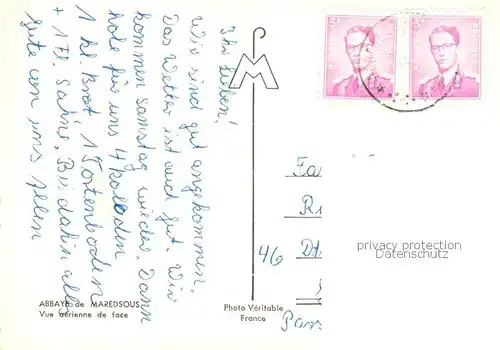 Ihr Lieben!
Wir sind gut angekommen.
Das Wetter ist auch gut. Wir
kommen Samstag wieder. Dann
hole für uns 4
1 kl. Brot 1 Tortenboden
+ 1 Fl. Sahne. Bis dahin alles
gute von uns Allen
ABBAYE de MAREDSOUS
Vue aérienne de face
M
Photo Véritable
France
46
privacy protection
Datenschutz